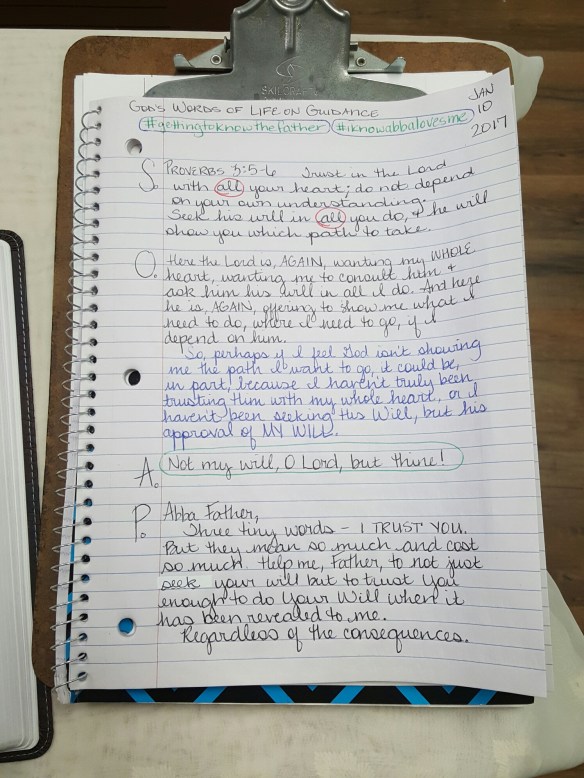 SKILCRAFT
GOD'S WORDS OF LIFE ON GUIDANCE
JAN
10
2017
#gettingtoknowthefather #iknowabbalovesme
S. PROVERBS 3:5-6 Trust in the Lord
with all your heart; do not depend
on your own understanding.
Seek his will in all you do, & he will
show you which path to take.
O. Here the Lord is, AGAIN, wanting my WHOLE
heart, wanting me to consult him &
ask him his will in all I do. And here
he is, AGAIN, offering to show me what I
need to do, where I need to go, if I
depend on him.
So, perhaps if I feel God isn't showing
me the path I want to go, it could be,
in part, because I haven't truly been
trusting Him with my whole heart, or I
haven't been seeking His Will, but his
approval of MY WILL.
A. Not my will, O Lord, but thine!
P. Abba Father,
Three tiny words - I TRUST YOU.
But they mean so much and cost
so much. Help me, Father, to not just
seek your will but to trust You
enough to do Your Will when it
has been revealed to me.
Regardless of the consequences.